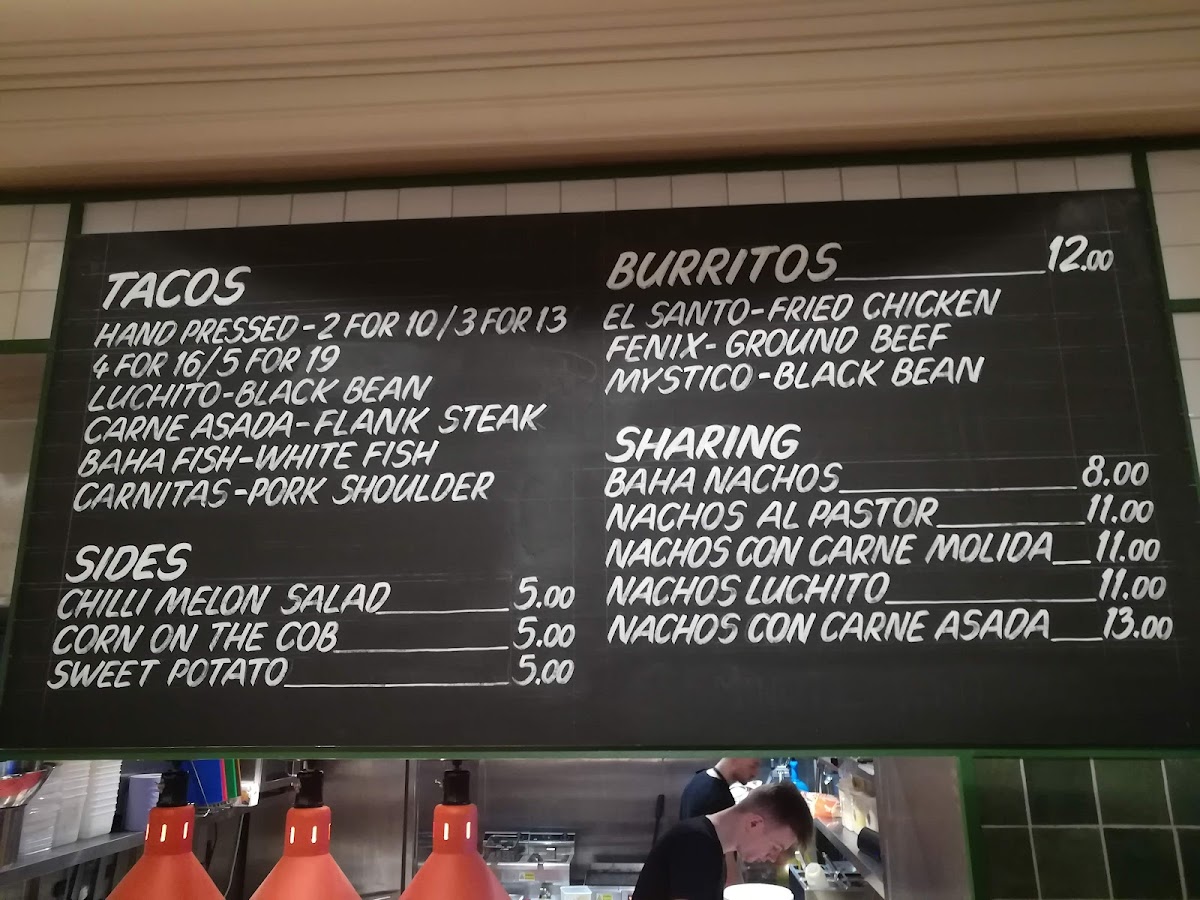 TACOS
HAND PRESSED-2 FOR 10/3 FOR 13
4 FOR 16/5 FOR 19
LUCHITO-BLACK BEAN
CARNE ASADA-FLANK STEAK
BAHA FISH-WHITE FISH
CARNITAS-PORK SHOULDER
SIDES
CHILLI MELON SALAD 5.00
CORN ON THE COB 5.00
SWEET POTATO 5.00
BURRITOS 12.00
EL SANTO-FRIED CHICKEN
FENIX-GROUND BEEF
MYSTICO-BLACK BEAN
SHARING
BAHA NACHOS 8.00
NACHOS AL PASTOR 11.00
NACHOS CON CARNE MOLIDA 11.00
NACHOS LUCHITO 11.00
NACHOS CON CARNE ASADA 13.00